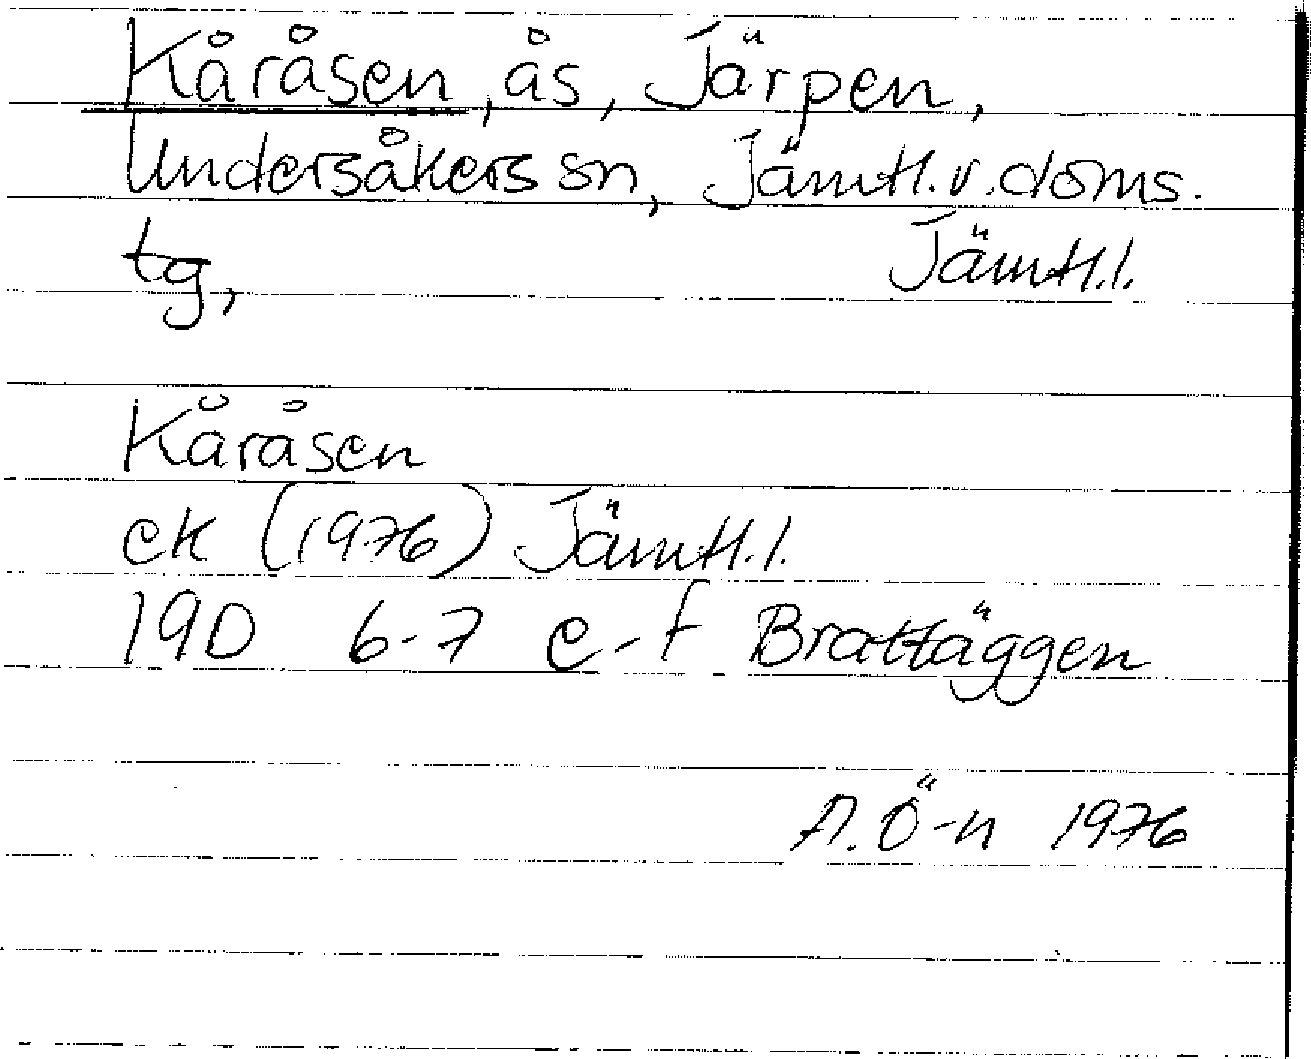 Kåråsen, ås, Järpen,
Undersåkers sn, Jämtl. v. doms.
tg, Jämtl. l.
Kåråsen
ek (1976) Jämtl. l.
19D 6-7 e-f Brattäggen
A. Ö-n 1976